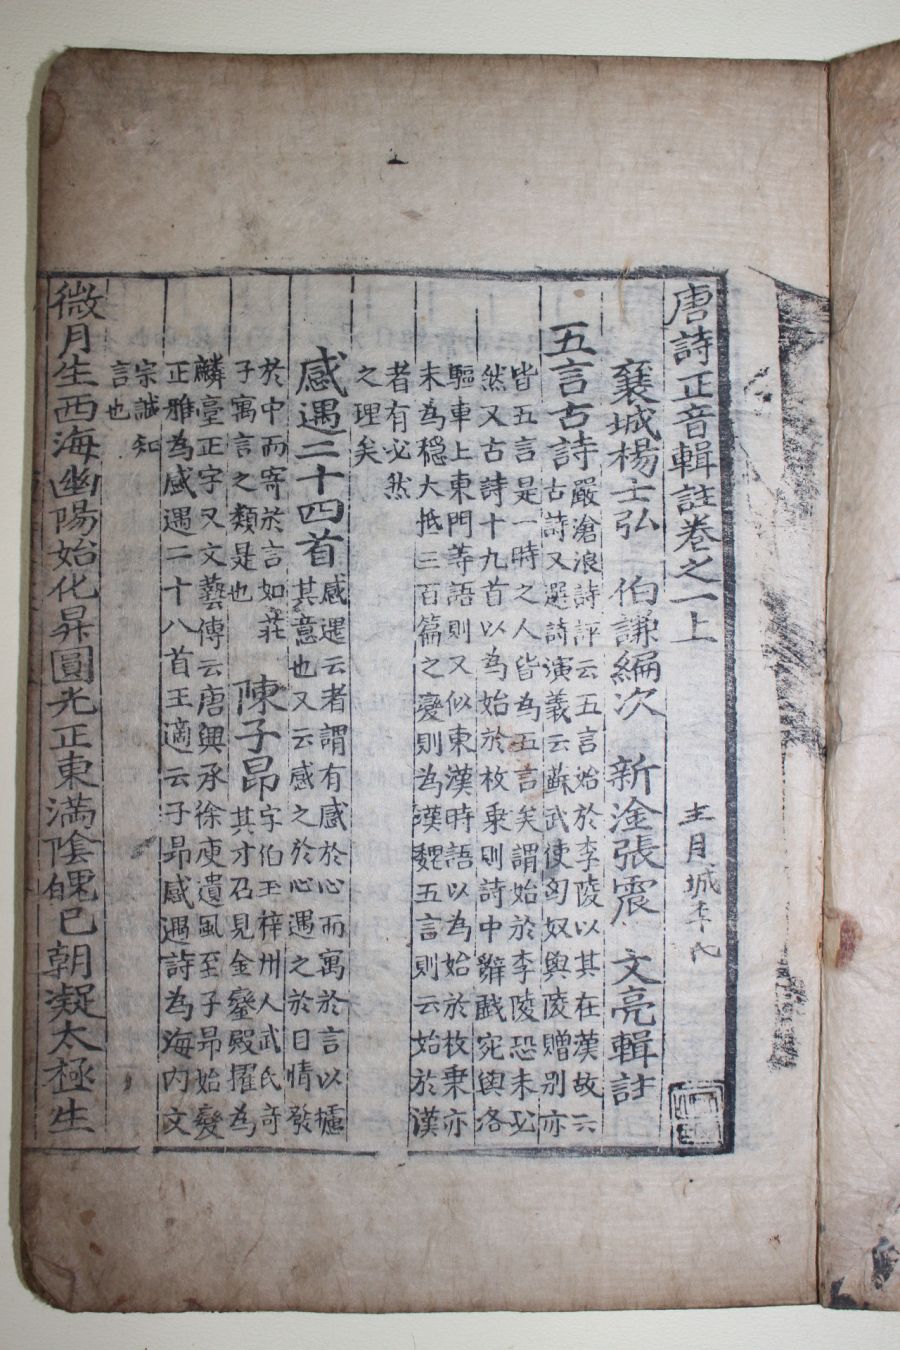 唐詩正音輯註卷之一上
襄城楊士弘 伯謙編次 新淦張震 文亮輯註
五言古詩
嚴滄浪詩評云五言始於李陵以其在漢故云
古詩又選詩演義云蘇武使匈奴與陵贈別亦
皆五言是一時之人皆為五言矣謂始於李陵恐未必
然又古詩十九首以為始於枚乘則詩中辭戲宛與洛
驅車上東門等語則又似東漢時語以為始於枚乘亦
未為穩大抵三百篇之變則為漢魏五言則云始於漢
者有必然
之理矣
感遇三十四首
感遇云者謂有感於心而寓於言以攄
其意也又云感之於心遇之於目情發
於中而寄於言如莊
子寓言之類是也
陳子昂
字伯玉梓州人武氏奇
其才召見金鑾殿擢為
麟臺正字又文藝傳云唐興承徐庾遺風至子昂始變
正雅為感遇二十八首王適云子昂感遇詩為海內文
宗誠知
言也
微月生西海幽陽始化昇圓光正東滿陰魄已朝凝太極生
主月城李氏